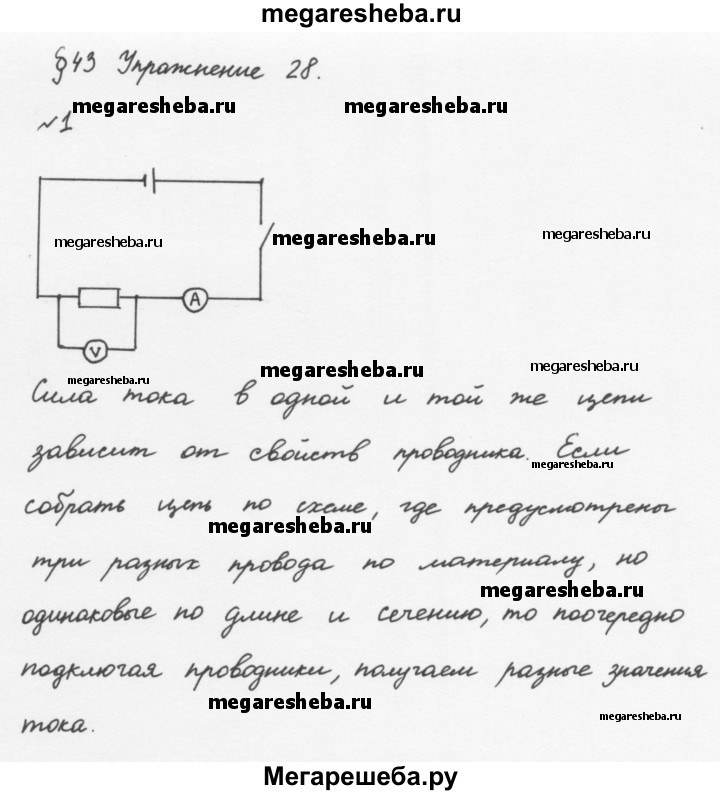 megaresheba.ru
§43 Упражнение 28.
megaresheba.ru megaresheba.ru
№1
megaresheba.ru megaresheba.ru megaresheba.ru
A
V
megaresheba.ru megaresheba.ru
megaresheba.ru
Сила тока в одной и той же цепи
зависит от свойств проводника. Если
megaresheba.ru
собрать цепь по схеме, где предусмотрены
megaresheba.ru
три разных провода по материалу, но
megaresheba.ru
одинаковые по длине и сечению, то поочередно
подключая проводники, получаем разные значения
megaresheba.ru
тока.
megaresheba.ru
Мегарешеба.ру